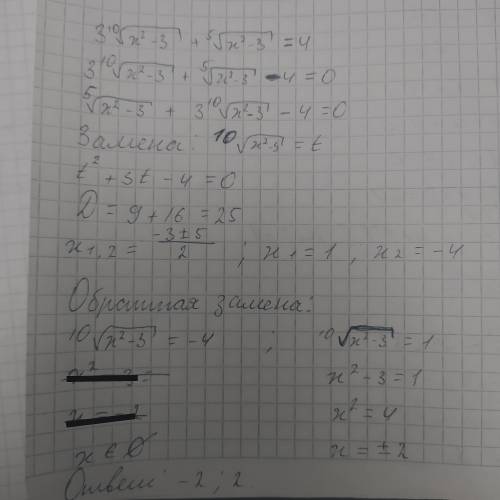 3¹⁰√(x²-3) + ⁵√(x²-3) = 4
3¹⁰√(x²-3) + ⁵√(x²-3) - 4 = 0
⁵√(x²-3) + 3¹⁰√(x²-3) - 4 = 0
Замена: ¹⁰√(x²-3) = t
t² + 3t - 4 = 0
D = 9 + 16 = 25
x₁,₂ = (-3±5)/2 ; x₁ = 1 , x₂ = -4
Обратная замена:
¹⁰√(x²-3) = -4 ; ¹⁰√(x²-3) = 1
x² - 3 = 1
x² = 4
x ∈ ∅ x = ±2
Ответ: -2 ; 2.